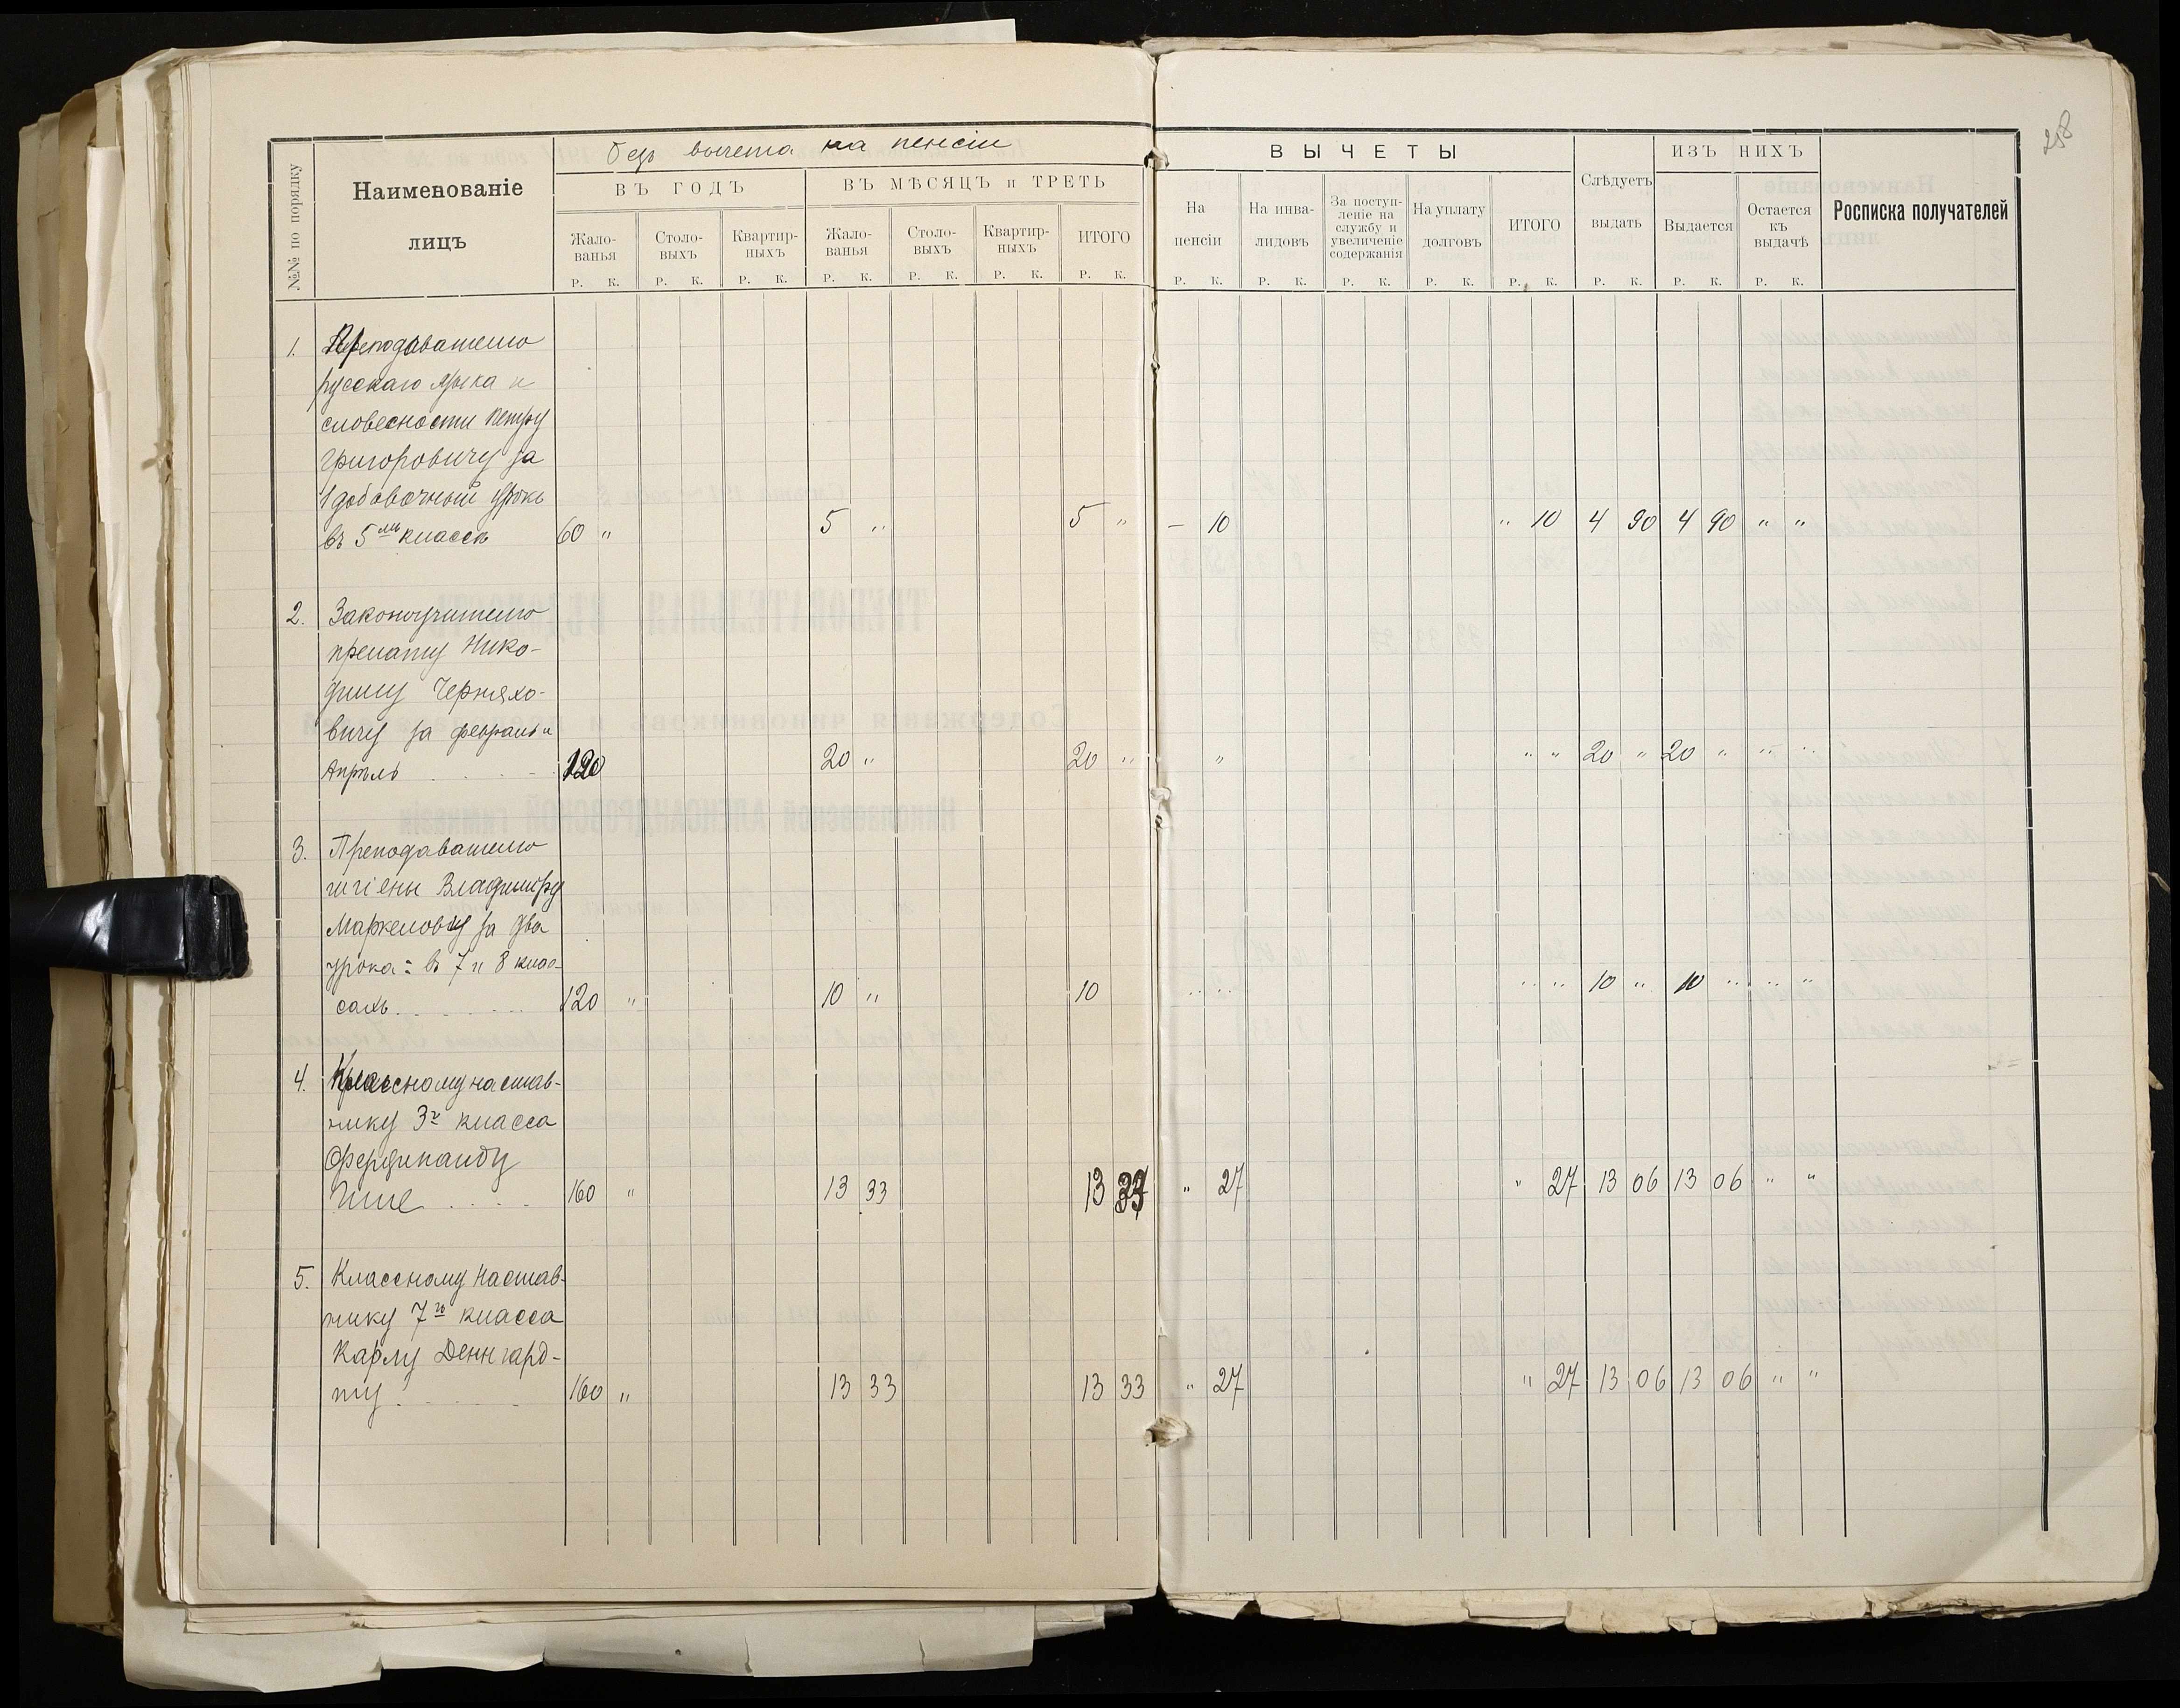 258
безъ вычета на пенсіи
№№ по порядку
Наименованіе
лицъ
ВЪ ГОДЪ
ВЪ МѢСЯЦЪ и ТРЕТЬ
Жало-
ванья
Столо-
выхъ
Квартир-
ныхъ
Жало-
ванья
Столо-
выхъ
Квартир-
ныхъ
ИТОГО
Р. К. Р. К. Р. К. Р. К. Р. К. Р. К. Р. К.
ВЫЧЕТЫ
На
пенсіи
На инва-
лидовъ
За поступ-
леніе на
службу и
увеличеніе
содержанія
На уплату
долговъ
ИТОГО
Слѣдуетъ
выдать
ИЗЪ НИХЪ
Выдается
Остается
къ
выдачѣ
Росписка получателей
Р. К. Р. К. Р. К. Р. К. Р. К. Р. К. Р. К. Р. К.
1. Преподавателю
русскаго языка и
словесности Петру
Григоровичу за
1 добавочный урокъ
въ 5мъ классѣ 60 " 5 " 5 " – 10 " 10 4 90 4 90 " "
2. Законоучителю
прелату Нико-
диму Черняхо-
вичу за февраль и
Апрѣль 120 20 " 20 " " " " 20 " 20 " " "
3. Преподавателю
гигіены Владиміру
Маркелову за два
урока: въ 7 и 8 клас-
сахъ 120 " 10 " 10 " " " " 10 " 10 " " "
4. Классному настав-
нику 3го класса
Фердинанду
160 " 13 33 13 33 " 27 " 27 13 06 13 06 " "
5. Классному настав-
нику 7го класса
Карлу Денгард-
ту 160 " 13 33 13 33 " 27 " 27 13 06 13 06 " "